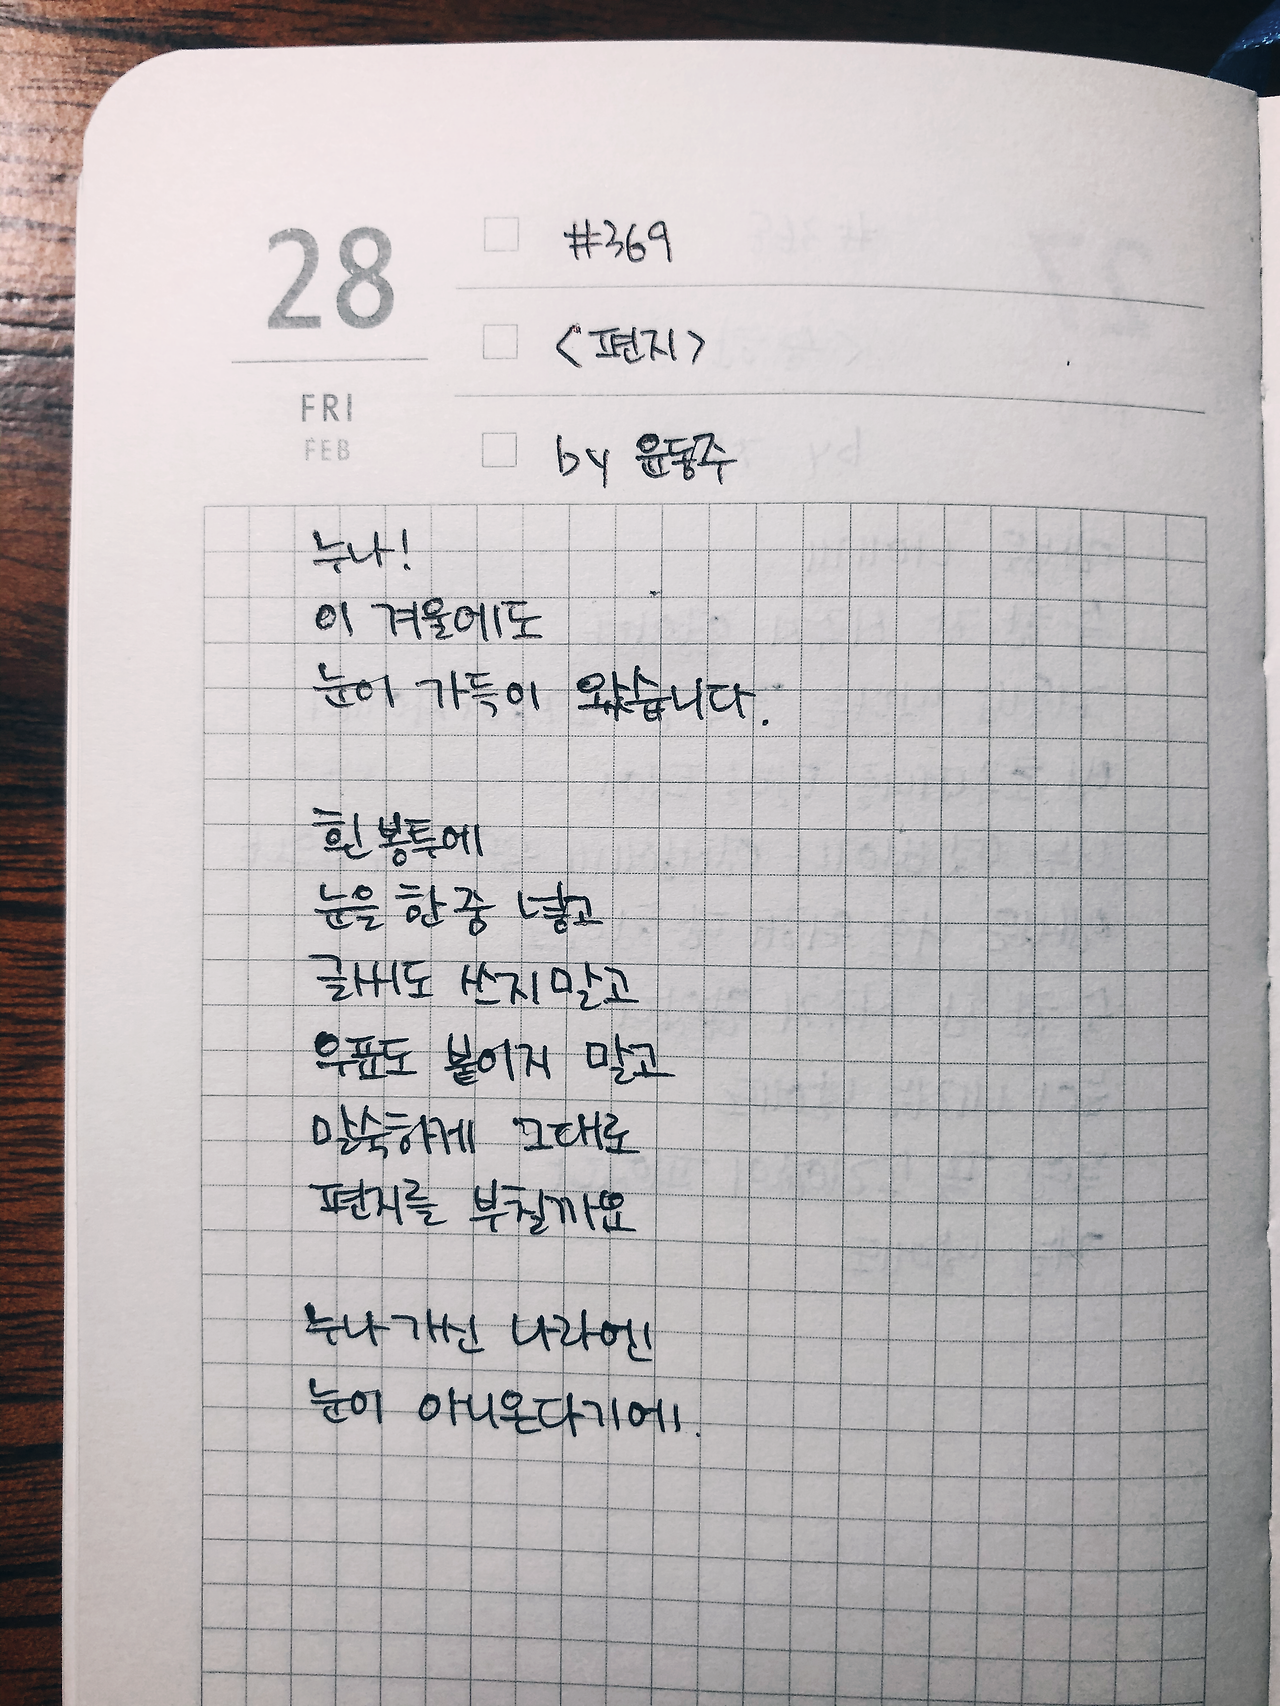 28
FRI
FEB
#369
<편지>
by 윤동주
누나!
이 겨울에도
눈이 가득히 왔습니다.
흰 봉투에
눈을 한 줌 넣고
글씨도 쓰지 말고
우표도 붙이지 말고
말쑥하게 그대로
편지를 부칠까요
누나 가신 나라엔
눈이 아니온다기에.